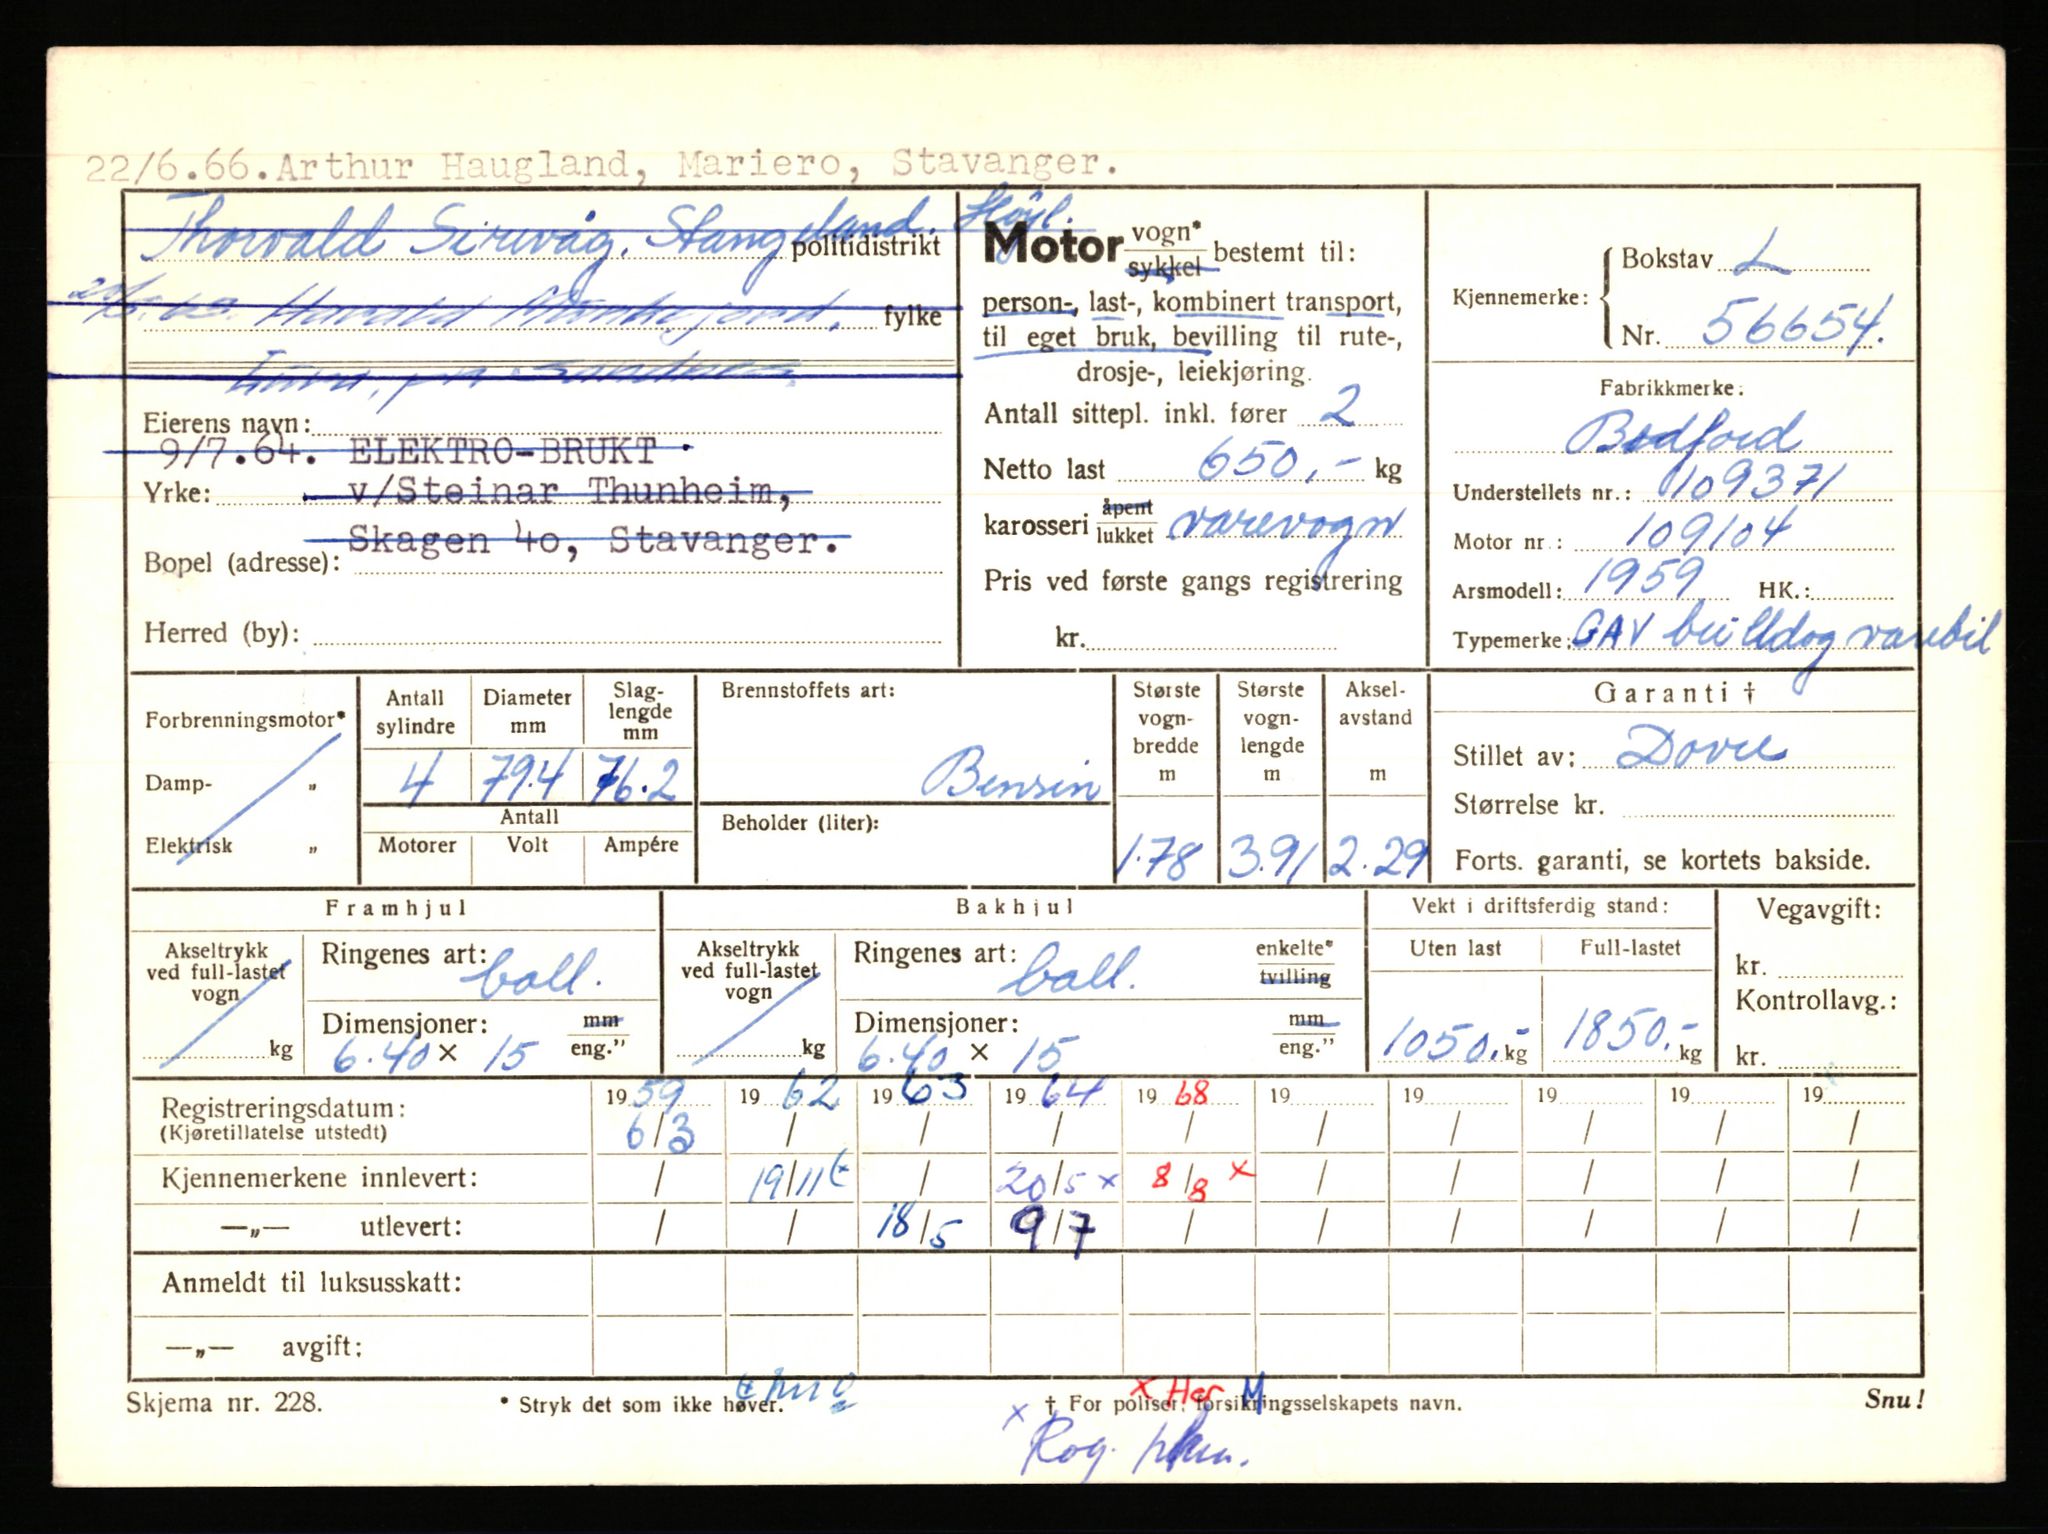 22/6.66. Arthur Haugland, Mariero, Stavanger.
Thorvald Sirevåg, Stangeland. Høyl.
politidistrikt
Harald
fylke
Eierens navn:
9/7.64. ELEKTRO-BRUKT
Yrke: v/Steinar Thunheim,
Skagen 40, Stavanger.
Bopel (adresse):
Herred (by):
Motor vogn* sykkel bestemt til:
person-, last-, kombinert transport,
til eget bruk, bevilling til rute-,
drosje-, leiekjøring.
Antall sittepl. inkl. fører 2
Netto last 650,- kg
karosseri åpent lukket varevogn
Pris ved første gangs registrering
kr.
Kjennemerke: Bokstav L
Nr. 56654.
Fabrikkmerke:
Bedford
Understellets nr.: 109371
Motor nr.: 109104
Årsmodell: 1959 HK.:
Typemerke: CAV bulldog varebil
Forbrenningsmotor*
Damp- „
Elektrisk „
Antall sylindre 4
Diameter mm 79.4
Slaglengde mm 76.2
Antall
Motorer Volt Ampére
Brennstoffets art:
Bensin
Beholder (liter):
Største vognbredde m 1.78
Største vognlengde m 3.91
Akselavstand m 2.29
Garanti †
Stillet av: Dovre
Størrelse kr.
Forts. garanti, se kortets bakside.
Framhjul
Akseltrykk ved full-lastet vogn kg
Ringenes art: ball.
Dimensjoner: mm eng."
6.40 x 15
Bakhjul
Akseltrykk ved full-lastet vogn kg
Ringenes art: ball. enkelte* tvilling
Dimensjoner: mm eng."
6.40 x 15
Vekt i driftsferdig stand:
Uten last Full-lastet
1050.- kg 1850.- kg
Vegavgift:
kr.
Kontrollavg.:
kr.
Registreringsdatum: 1959 1962 1963 1964 1968 19 19 19 19 19
(Kjøretillatelse utstedt) 6/3 / / / / / / / / /
Kjennemerkene innlevert: / 19/11 / 20/5 x 8/8 x / / / / /
—„— utlevert: / / 18/5 9/7 / / / / / /
Anmeldt til luksusskatt:
—„— avgift:
Skjema nr. 228.
* Stryk det som ikke høver.
x Her M
† For poliser: forsikringsselskapets navn.
Snu!
x Rog.